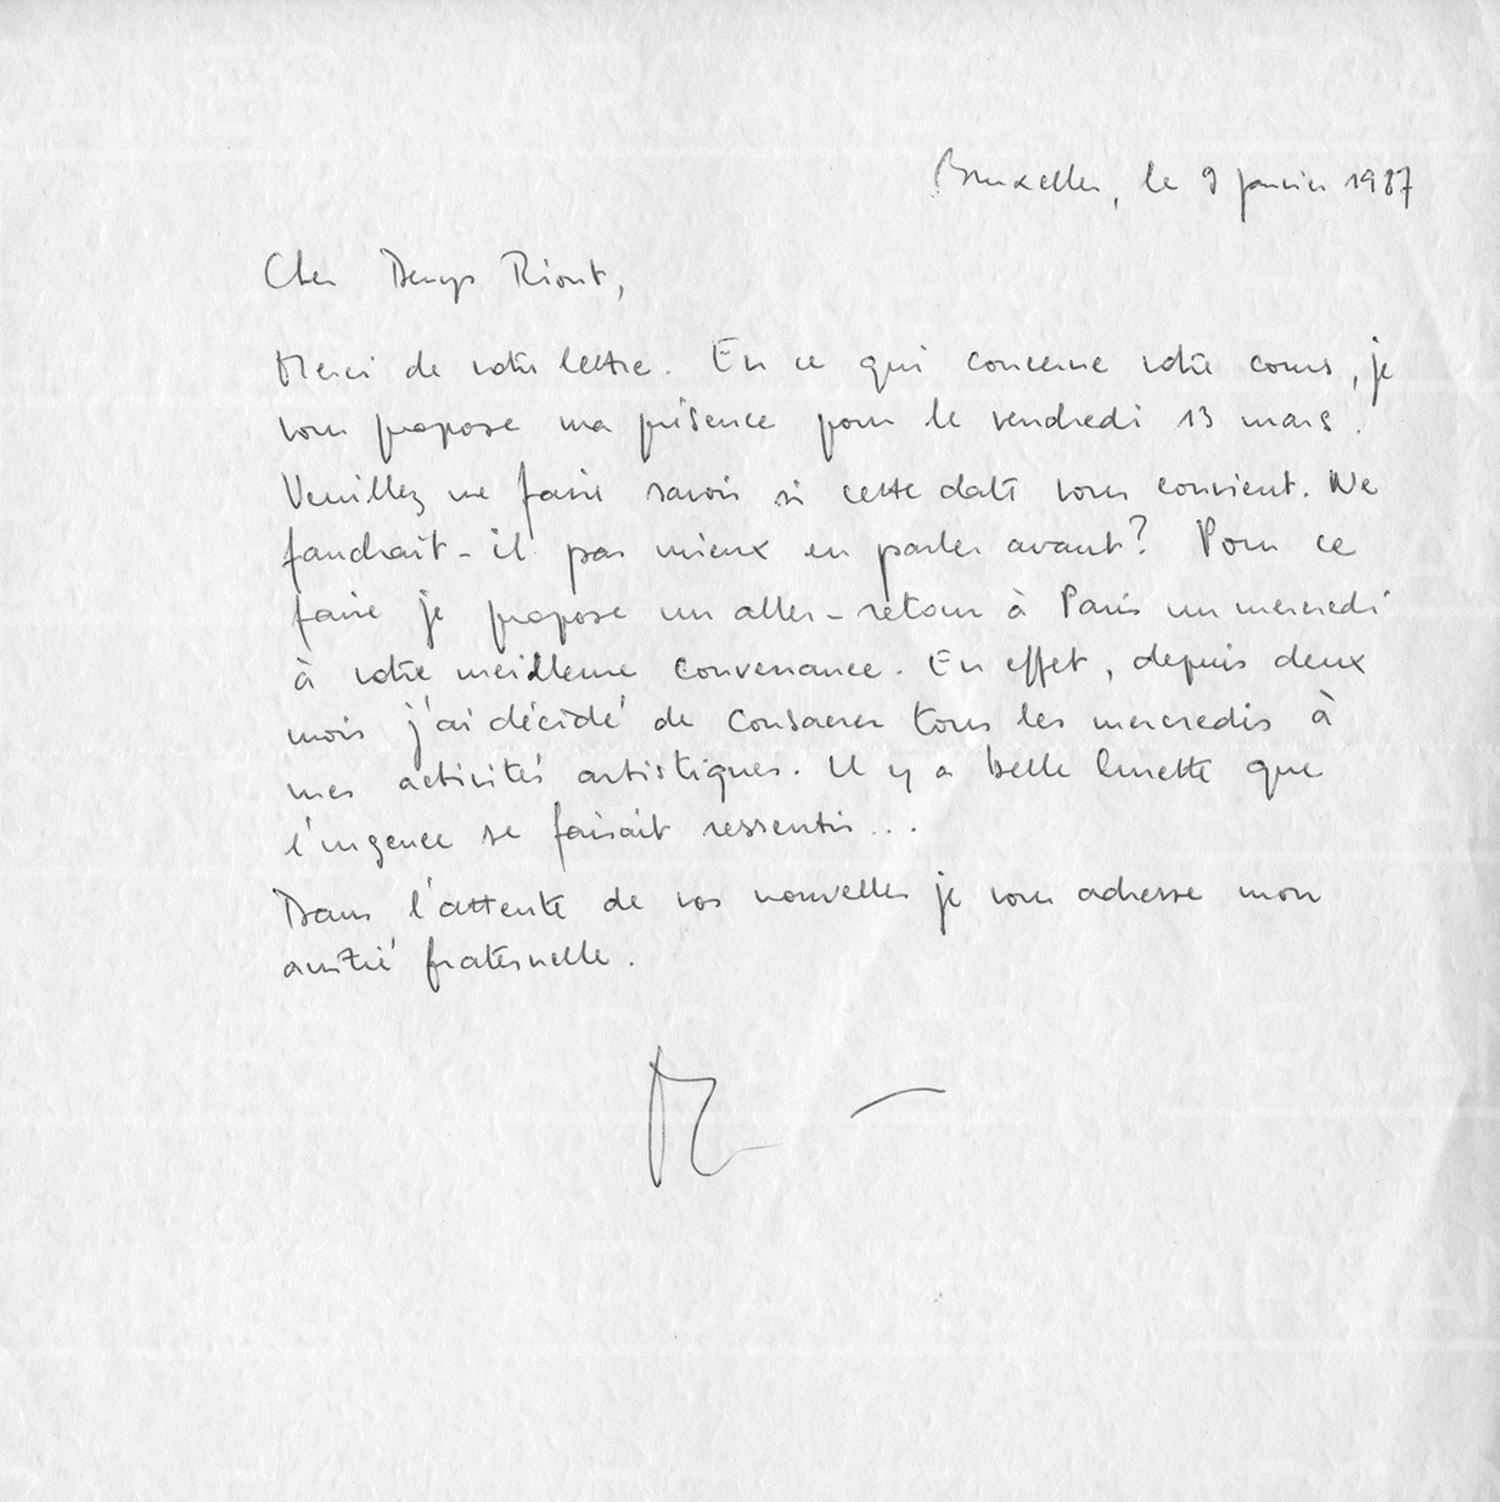 Bruxelles, le 9 janvier 1987
Cher Denys Riout,
Merci de votre lettre. En ce qui concerne votre cours, je
vous propose ma présence pour le vendredi 13 mars.
Veuillez me faire savoir si cette date vous convient. Ne
faudrait-il pas mieux en parler avant? Pour ce
faire je propose un aller-retour à Paris un mercredi
à votre meilleure convenance. En effet, depuis deux
mois j'ai décidé de consacrer tous les mercredis à
mes activités artistiques. Il y a belle lurette que
l'urgence se faisait ressentir...
Dans l'attente de vos nouvelles je vous adresse mon
amitié fraternelle.